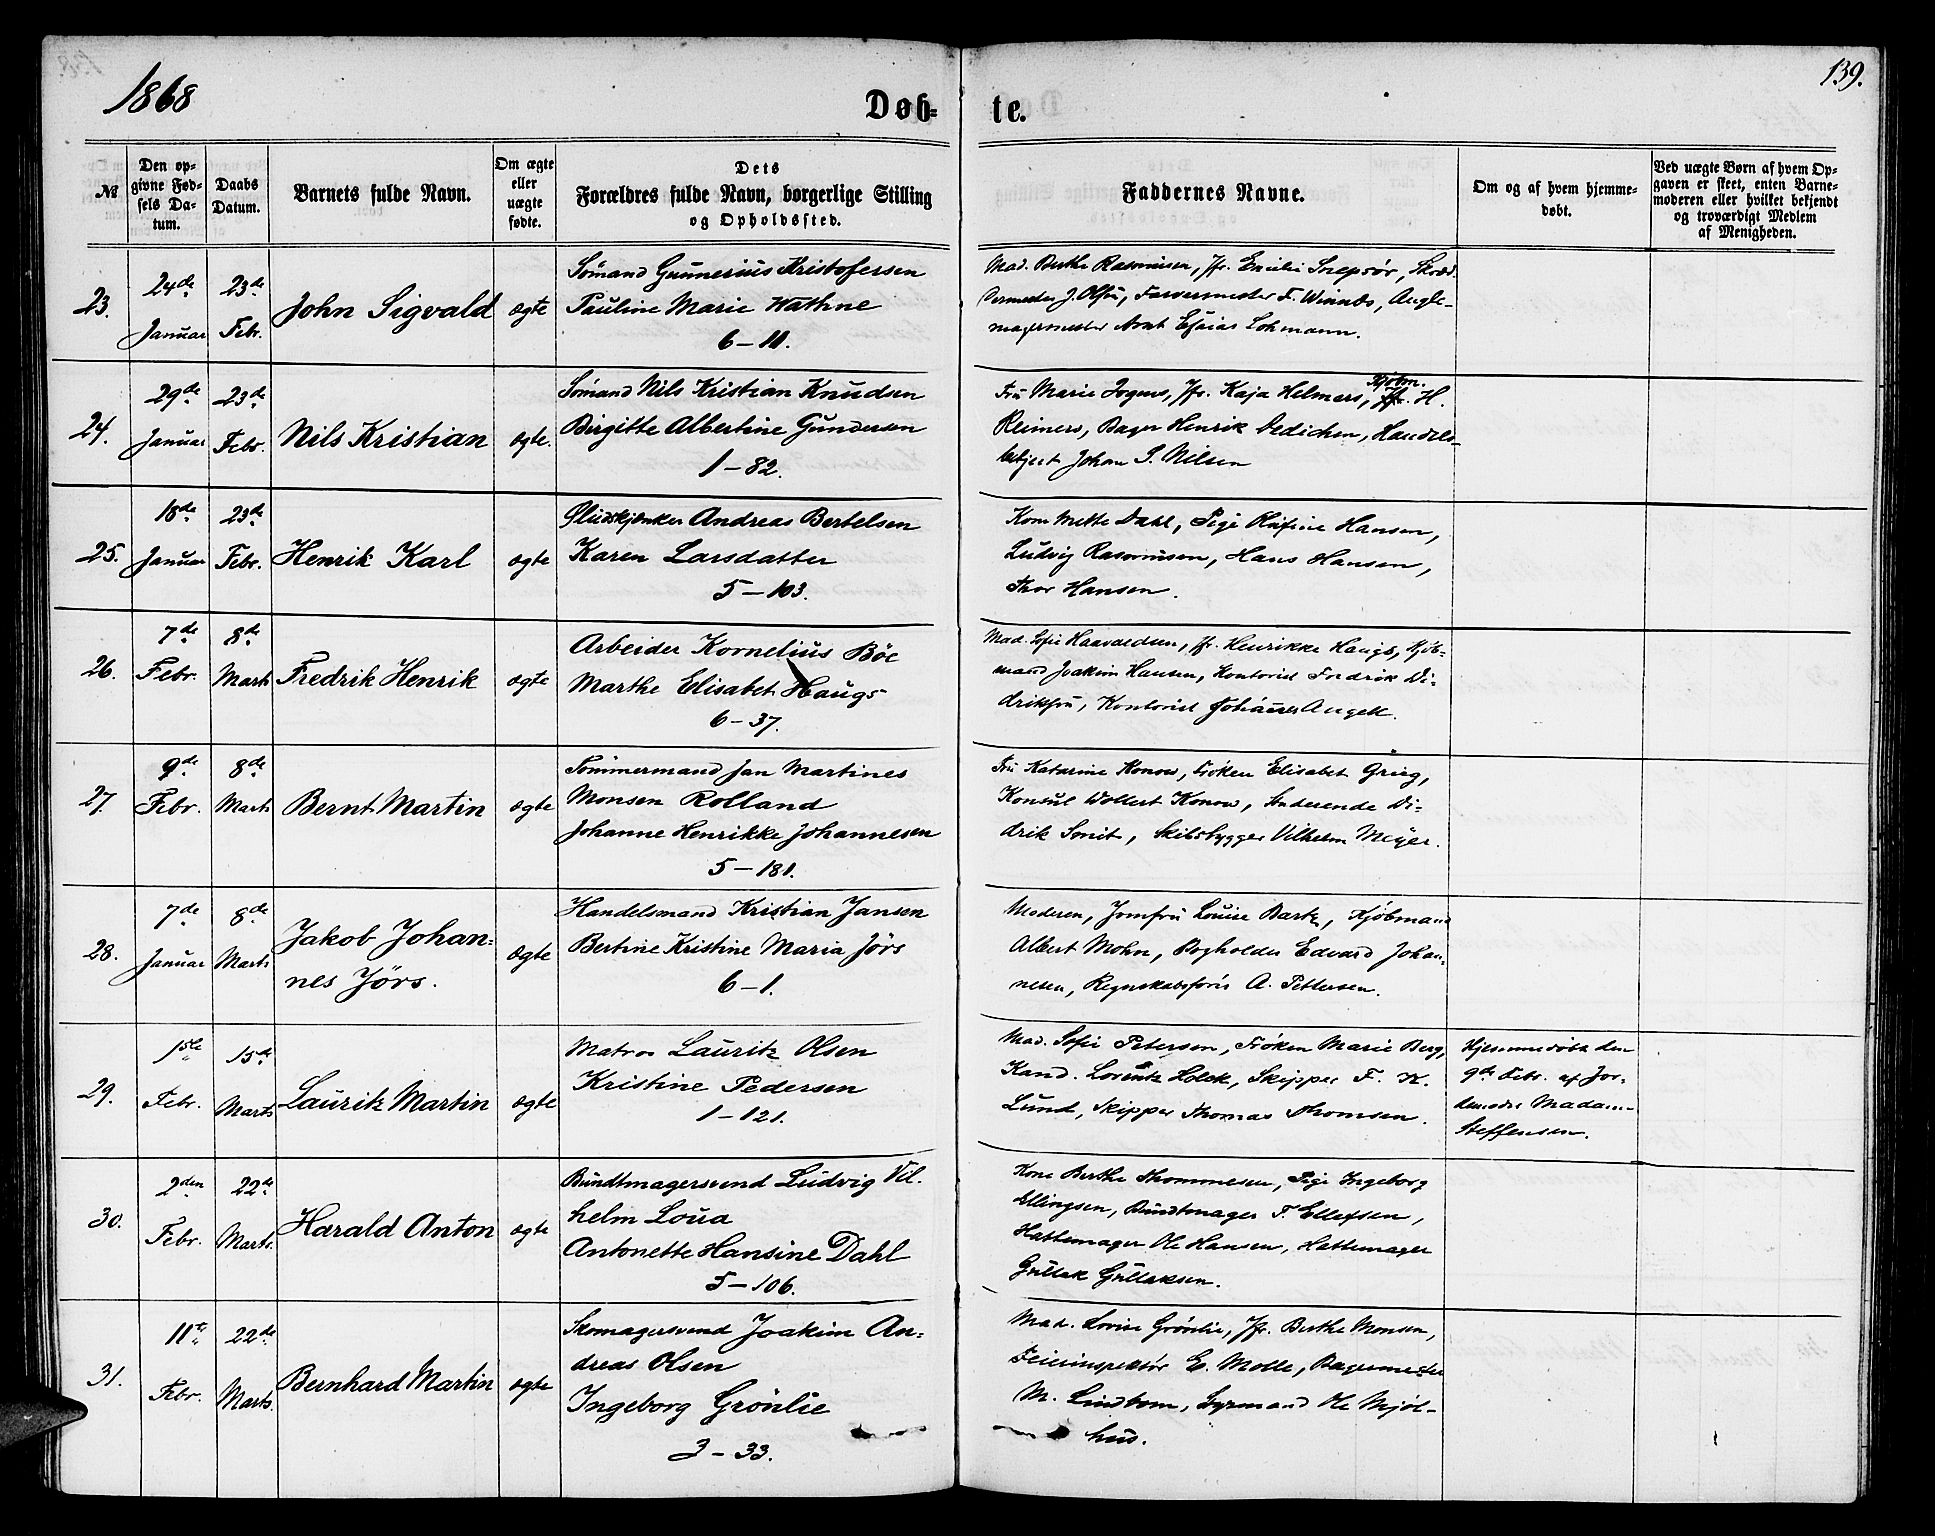 1868
139.
Døb-
te.
№
Den op-
givne Fød-
sels Da-
tum.
Daabs
Datum.
Barnets fulde Navn.
Om ægte
eller
uægte
fødte.
Dets
Forældres fulde Navn, borgerlige Stilling
og Opholdssted.
Faddernes Navne.
Om og af hvem hjemme-
døbt.
Ved uægte Børn af hvem Op-
gaven er skeet, enten Barne-
moderen eller hvilket bekjendt
og troværdigt Medlem
af Menigheden.
23.
24de
Januar
23de
Febr.
John Sigvald
ægte
Sømand Gunnerius Kristofersen
Pauline Marie Wathne
6 – 11.
Mad. Berthe Rasmusen, Jfr. Emilie
J. Olsen, Farvermester F.
magermester Lohmann.
24.
29de
Januar
23de
Febr.
Nils Kristian
ægte.
Sømand Nils Kristian Knudsen
Birgitte Albertine Gundersen
1 – 82.
Fru Marie Jfr. Kaja Helmers, Kjøbm. H.
Reimers, Bager Henrik Dedichen, Handels-
betjent Johan S. Nilsen
25.
18de
Januar
23de
Febr.
Henrik Karl
ægte
Øludskjænker Andreas Bertelsen
Karen Larsdatter
5 – 103.
Kone Mette Dahl, Pige Hansen,
Ludvig Rasmusen, Hans Hansen,
Thor Hansen.
26.
7de
Febr.
8de
Marts
Fredrik Henrik
ægte
Arbeider Kornelius Böe
Marthe Elisabet Haugs
6 – 37.
Mad. Sofie Haavardsen, Jfr. Henrikke Haugs, Kjöb-
mand Joakim Hansen, Kontorist Fredrik Di-
driksen, Kontorist Johannes Angell.
27.
9de
Febr.
8de
Marts
Bernt Martin
ægte
Tömmermand Jan Martines
Monsen Rolland
Johanne Henrikke Johannesen
5 – 181.
Fru Katarine Konow, Fröken Elisabet Grieg,
Konsul Wollert Konow, Studerende Di-
drik Smit, Skibsbygger Vilhelm Meyer.
28.
7de
Januar
8de
Marts
Jakob Johan-
nes Jörs.
ægte
Handelsmand Kristian Jansen
Bertine Kristine Maria Jörs
6 – 1.
Moderen, Jomfru Louise Kjöbmand
Albert Mohn, Bogholder Edvard Johan-
nesen, Regnskabsförer A. Pettersen.
29.
1ste
Febr.
15de
Marts
Lauritz Martin
ægte
Matros Lauritz Olsen
Kristine Pedersen
1 – 121.
Mad. Sofie Petersen, Fröken Marie Berg,
Kand. Lorentz Holck, Skipper F. K.
Lund, Skipper Thomas Thomsen.
Hjemmedöbt den
9de Febr. af Jor-
demoder Madam
Steffensen.
30.
2den
Febr.
22de
Marts.
Harald Anton
ægte
Bundtmagersvend Ludvig Vil-
helm Loua
Antonette Hansine Dahl
5 – 106.
Kone Berthe Thommesen, Pige Ingeborg
Ellingsen, Bundtmager T. Ellefsen,
Hattemager Ole Hansen, Hattemager
Gullak Gullaksen.
31.
11te
Febr.
22de
Marts.
Bernhard Martin
ægte
Skomagersvend Joakim An-
dreas Olsen
Ingeborg Grönlie
3 – 33.
Mad. Lovise Grönlie, Jfr. Berthe Monsen,
Feierinspektör E. Molle, Bagermester
M. Lindbom, Styrmand Ole Mjöl-
hus.